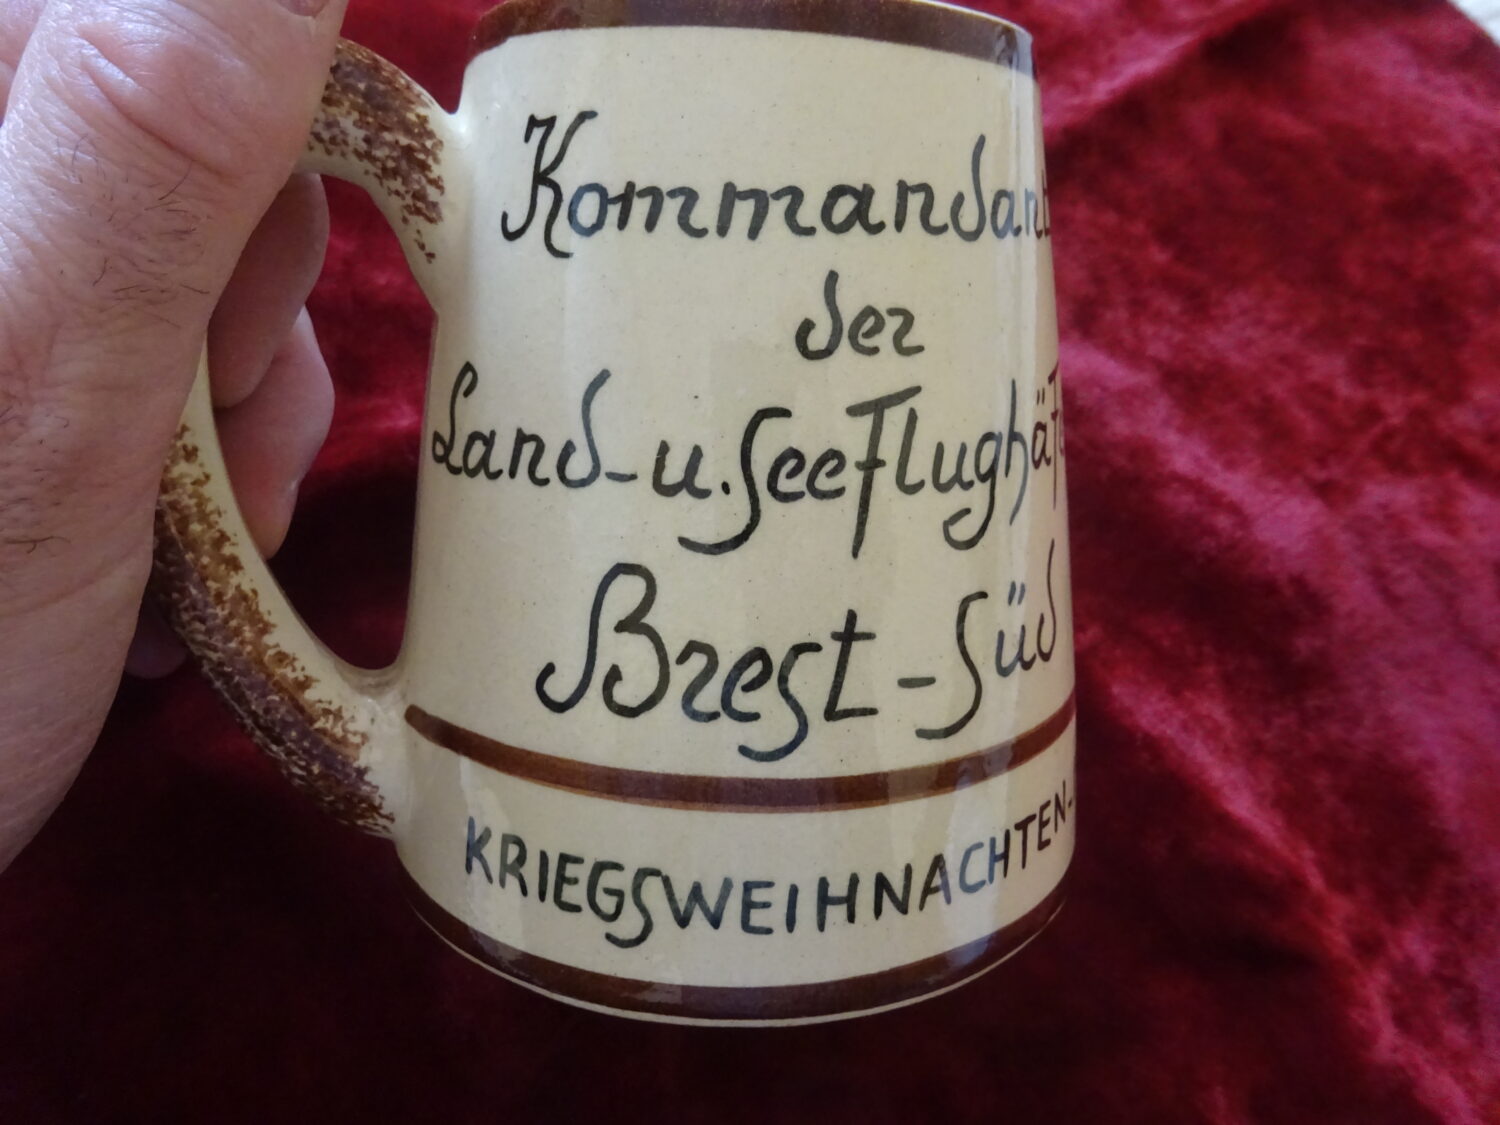 Kommandant
der
Land-u.Seeflughäfe
Brest-Süd
KRIEGSWEIHNACHTEN-